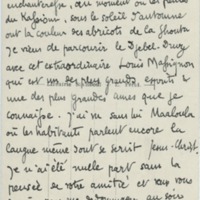 enchanteresse, au moment où les pentes
du Kassioun, sous le soleil d'automne
ont la couleur des abricots de la Ghouta
Je viens de parcourir le Djebel Druz
avec cet extraordinaire Louis Massignon
qui est un des plus grands esprits &
une des plus grandes ames que je
connaisse. J'ai vu sans lui Maaloula
où les habitants parlent encore la
langue même dont se servit Jesus-Christ.
Je n'ai été nulle part sans la
pensée de votre amitié et vous vous
au soir